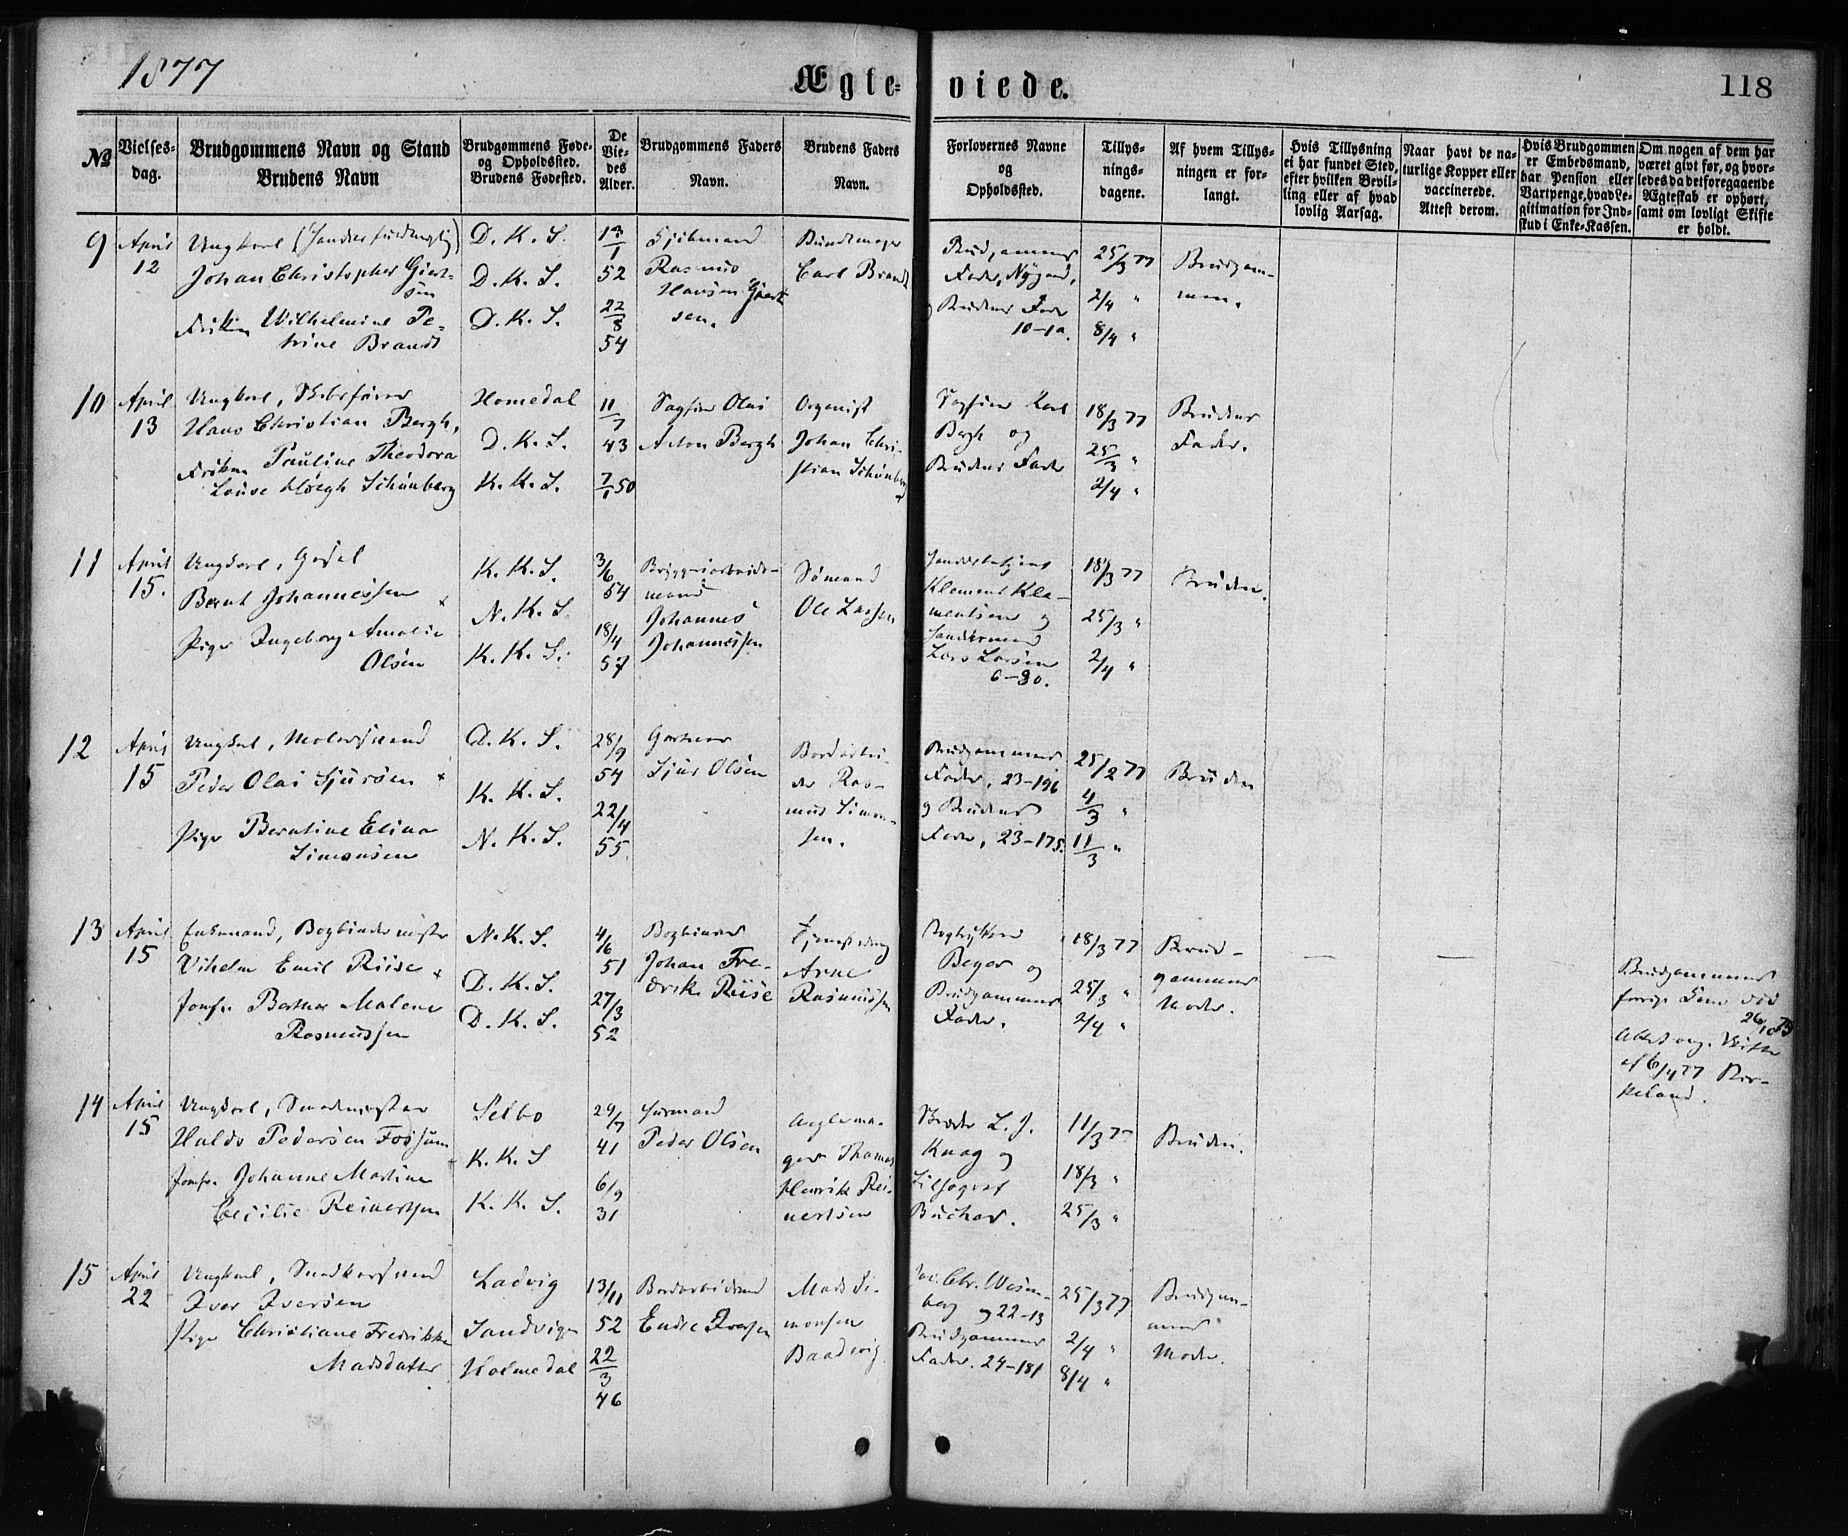 1877
Ægte-viede.
118
№
Vielses-dag.
Brudgommens Navn og Stand
Brudens Navn
Brudgommens Føde- og Opholdssted.
Brudens Fødested.
De Vie-des Alder.
Brudgommens Faders Navn.
Brudens Faders Navn.
Forlovernes Navne og Opholdssted.
Tillys-nings-dagene.
Af hvem Tillys-ningen er for-langt.
Hvis Tillysning ei har fundet Sted, efter hvilken Bevil-ling eller af hvad lovlig Aarsag.
Naar havt de na-turlige Kopper eller vaccinerede. Attest derom.
Hvis Brudgommen er Embedsmand, har Pension eller Vartpenge, hvad Le-gitimation for Ind-skud i Enke-Kassen.
Om nogen af dem har været givt før, og hvor-ledes da det foregaaende Ægteskab er ophørt, samt om lovligt Skifte er holdt.
9
April 12
Ungkarl
Johan Christopher Giert-
sen
Frøken Wilhelmine Pe-
trine Brandt
D. K. S.
D. K. S.
D. K. S.
13/1
52
22/8
54
Rasmus
Hansen Gjert-
sen.
Bundtmager
Carl Brandt
Brudgommens
Fader, Nygaard,
og Brudens Fader
10-1a.
25/3 77
2/4 "
8/4 "
Brudgom-
men.
10
April 13
Ungkarl, Skibsfører
Hans Christian Bergh,
Frøken Pauline Theodora
Louise Høegh Schönberg
Homedal
D. K. S.
K. K. S.
11/7
43
7/1 50
Olai
Anton Bergh
Organist
Johan Chri-
stian Schönberg
Bergh og
Brudens Fader
18/3 77
25/3 "
2/4 "
Brudens
Fader.
11
April 15.
Ungkarl,
Bernt Johannessen
Pige Ingeborg Amalie
Olsen
K. K. S.
N. K. S.
K. K. S.
3/6
54
18/4
57
Bryggeriarbeids-
mand
Johannes
Johannessen
Sømand
Ole Larsen
Klement Kle-
mentsen og
Lars Larsen
6-30.
18/3 77
25/3 "
2/4 "
Bruden.
12
April 15
Ungkarl, Malersvend
Peder Olai Sjursen
Pige Berntine Elina
Simonsen
D. K. S.
K. K. S.
N. K. S.
28/9
54
22/4
55.
Gartner
Sjur Olsen
Ras-
mus Simon-
sen.
Brudgommens
Fader, 23-196
og Brudens
Fader, 23-175.
25/2 77
4/3 "
11/3 "
Bruden
13
April 15
Enkemand, Bogbindermester
Vilhelm Emil Riise
Jomfr. Berthe Malene
Rasmussen
N. K. S.
D. K. S.
D. K. S.
4/6
51
27/3
52
Bogbinder
Johan Fre-
drik Riise
Arne
Rasmussen
Bogtrykker
Beyer og
Brudgommens
Fader.
18/3 77
25/3 "
2/4 "
Brud-
gommens
Moder.
Brudgommens
forrige Kone død
26/10 75
Attest ang. Skifte
af 6/4 77 Bir-
keland.
14
April 15
Ungkarl, Smedmester
Haldo Pedersen Fossum
Jomfr. Johanne Martine
Cecilie Reinertsen
Selbo
K. K. S
K. K. S.
29/7
41
6/9
31
Peder Olsen
Thomas
Henrik Rei-
nertsen
L. J.
Knag og
Lithograf
Bucher.
11/3 77
18/3 "
25/3 "
Bruden.
15
April 22
Ungkarl,
Iver Iversen
Pige Christiane Fredrikke
Madsdatter
Ladvig
Sandvigen
Holmedal
13/11
52
22/3
46
Bordarbeider
Endre Iversen
Mads Si-
monsen
Chr. Wesen-
berg og 22-13
Brudgommens
Fader. 24-181
25/3 77
2/4 "
8/4 "
Brudgom-
mens
Moder.